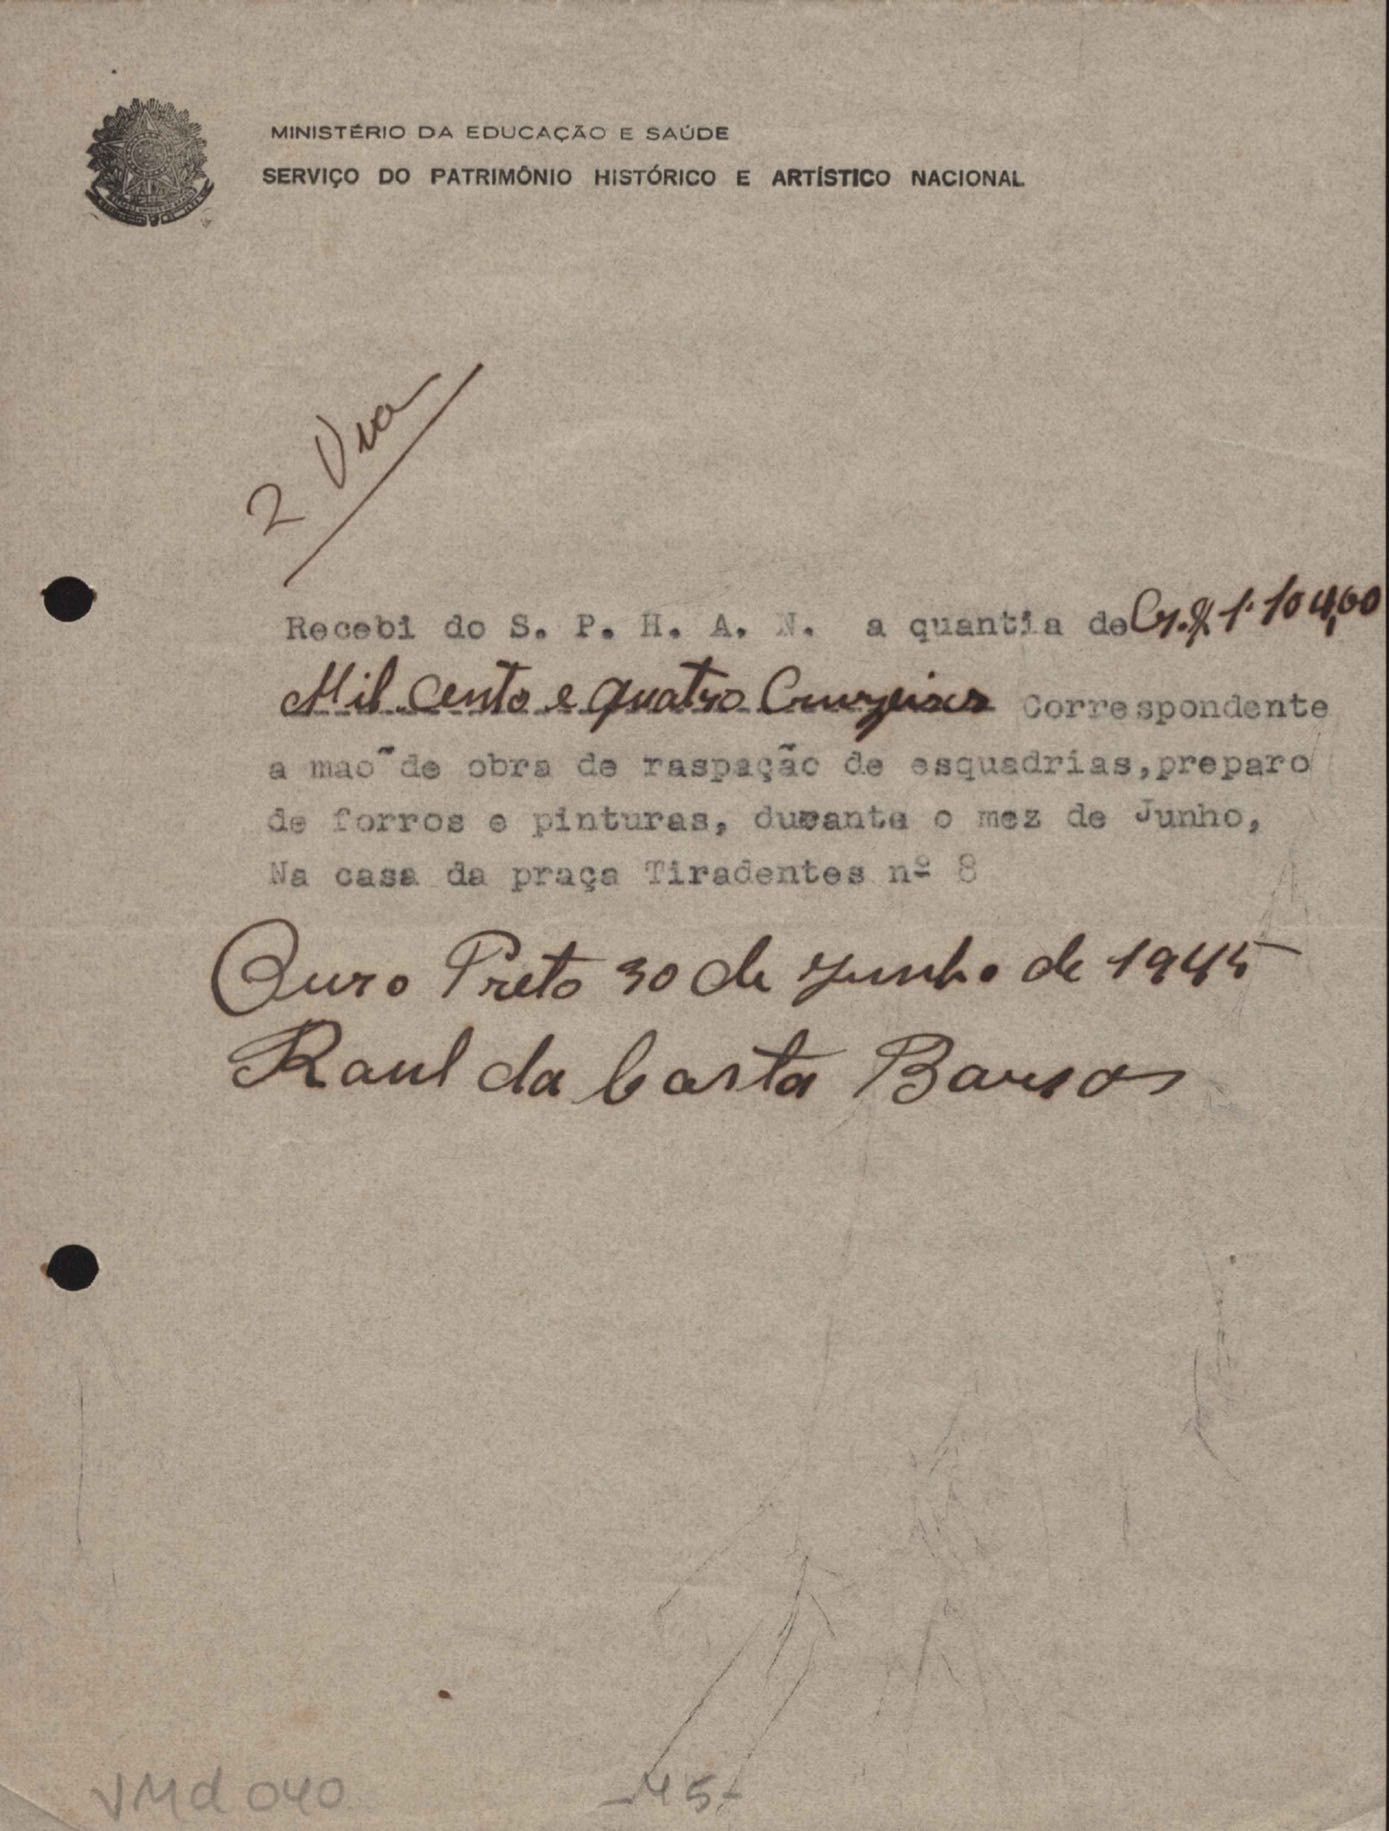 MINISTÉRIO DA EDUCAÇÃO E SAÚDE
SERVIÇO DO PATRIMÔNIO HISTÓRICO E ARTÍSTICO NACIONAL
2 Via
Recebi do S. P. H. A. N. a quantia de Cr.$ 1.104,00
Mil cento e quatro Cruzeiros Correspondente
a mao~de obra de raspação de esquadrias,preparo
de forros e pinturas, durante o mez de Junho,
Na casa da praça Tiradentes nº 8
Ouro Preto 30 de Junho de 1945
Raul da Costa Barros
VMd 040